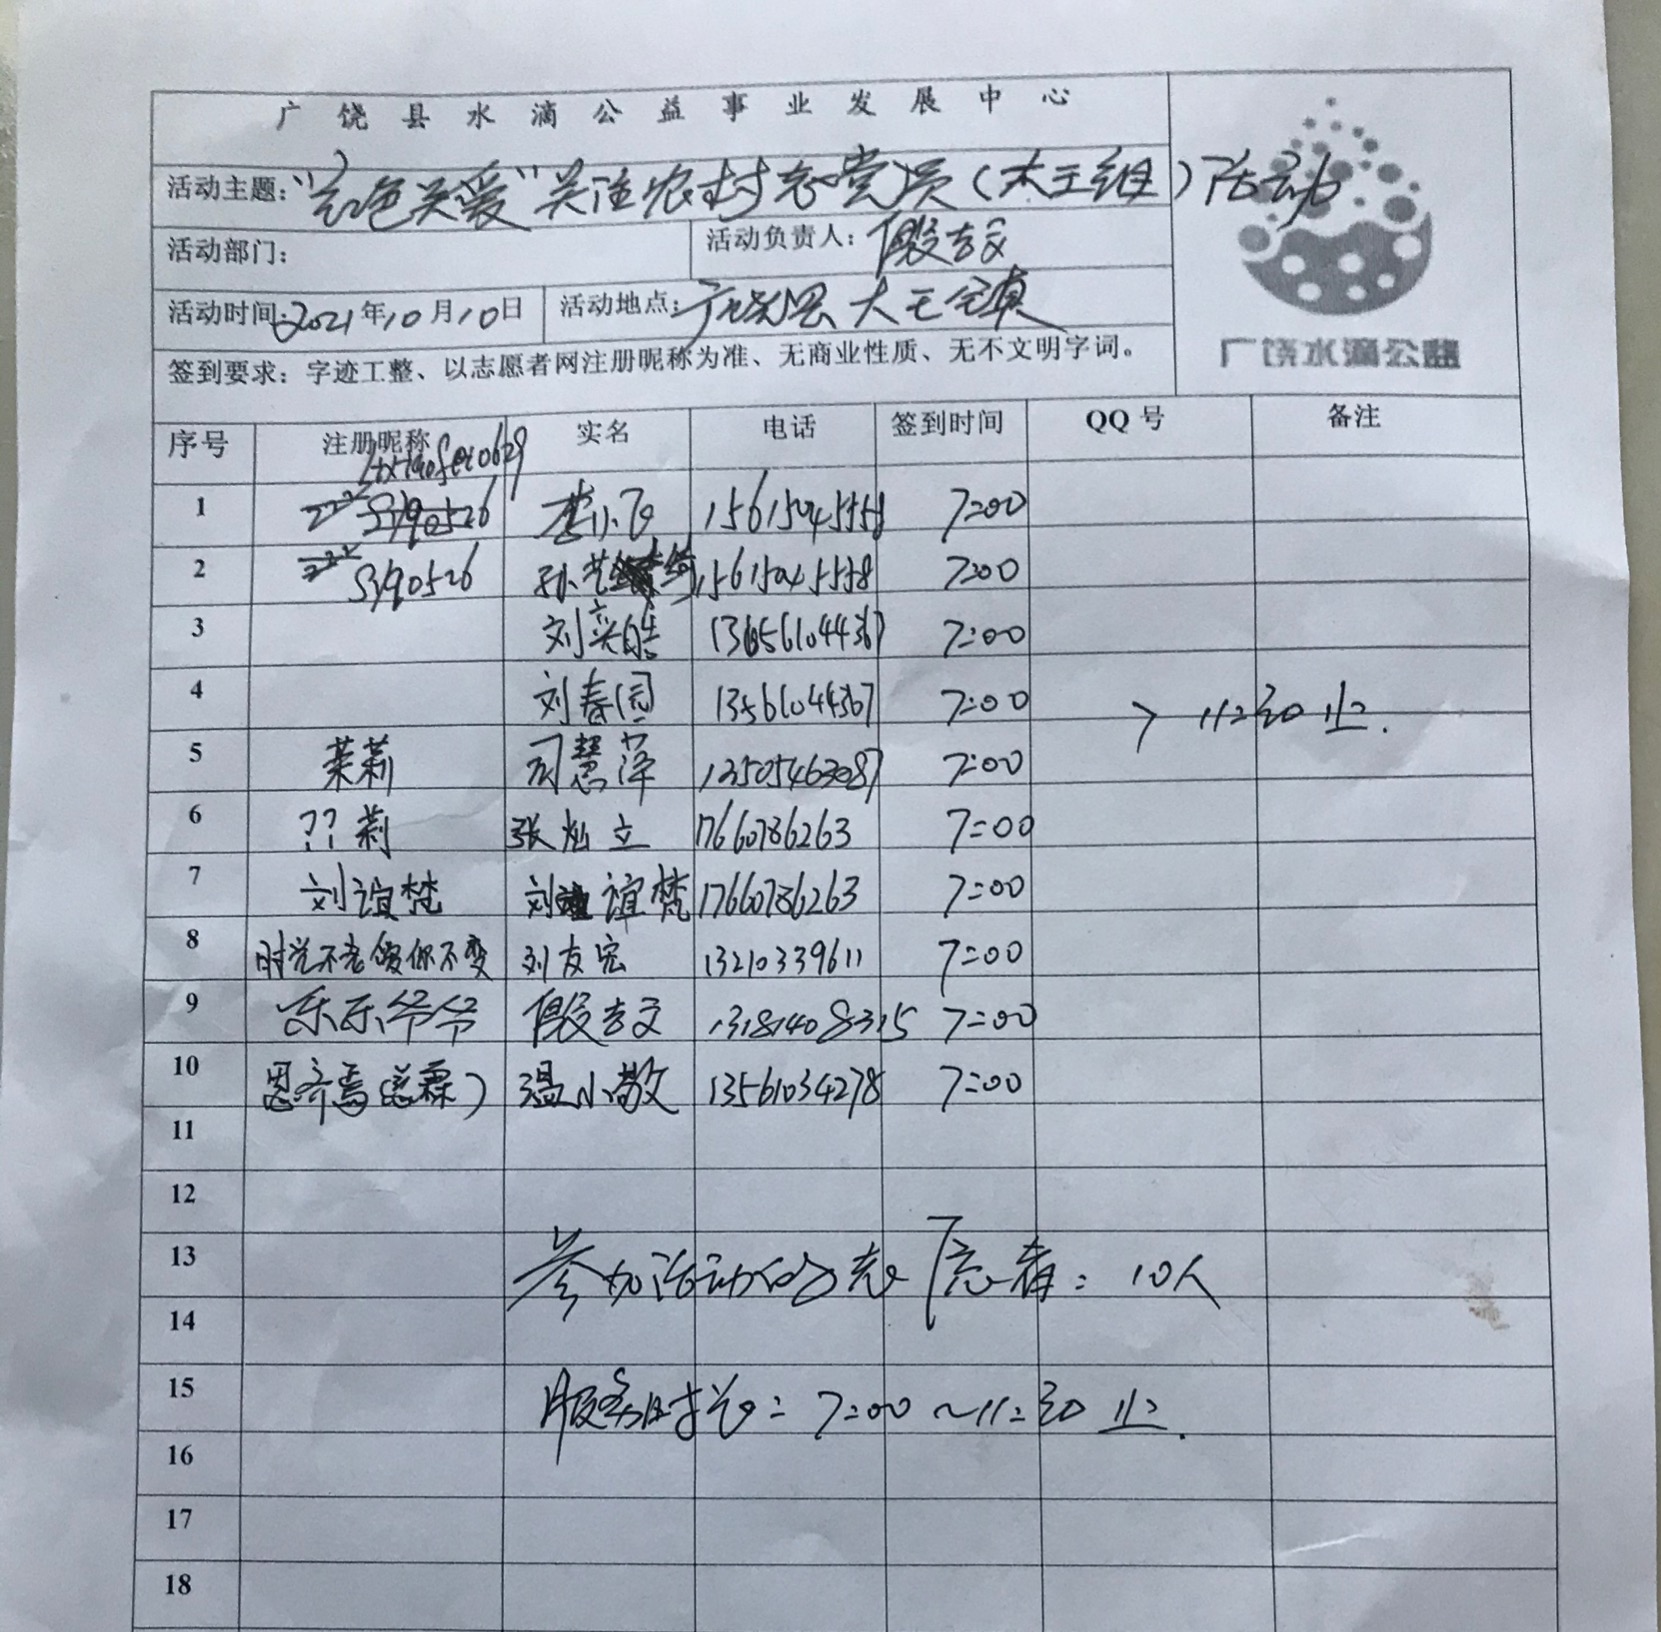 广饶县水滴公益事业发展中心
活动主题:“红色关爱”关注农村老党员(大王组)活动
活动部门:
活动负责人:假吉文
活动时间:2021年10月10日 活动地点:广饶县大王镇
广饶水滴公益
签到要求:字迹工整、以志愿者网注册昵称为准、无商业性质、无不文明字词。
序号 注册昵称 实名 电话 签到时间 QQ号 备注
1 李小飞 7:00
2 Syq0526 孙艺绮 15615045558 7:00
3 刘奕皓 7:00
4 刘春园 13561044367 7:00
> 11:30止.
5 茉莉 司慧萍 13505463087 7:00
6 ??莉 张灿立 17660786263 7:00
7 刘谊梵 刘谊梵 17660786263 7:00
8 时光不老僾你不变 刘友宏 13210339611 7:00
9 乐乐爷爷 假吉文 13181408315 7:00
10 温小敬 13561034278 7:00
11
12
13 参加活动的志愿者:10人
14
15 服务时长:7:00~11:30止.
16
17
18